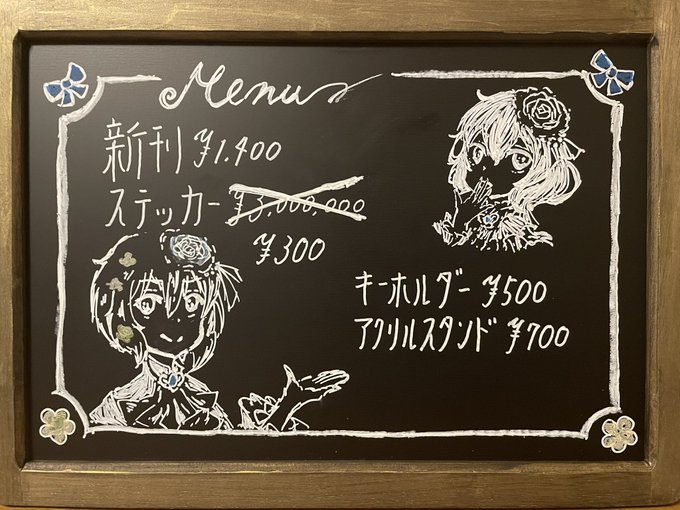 Menu
新刊 ¥1.400
ステッカー ¥3,000,000
¥300
キーホルダー ¥500
アクリルスタンド ¥700